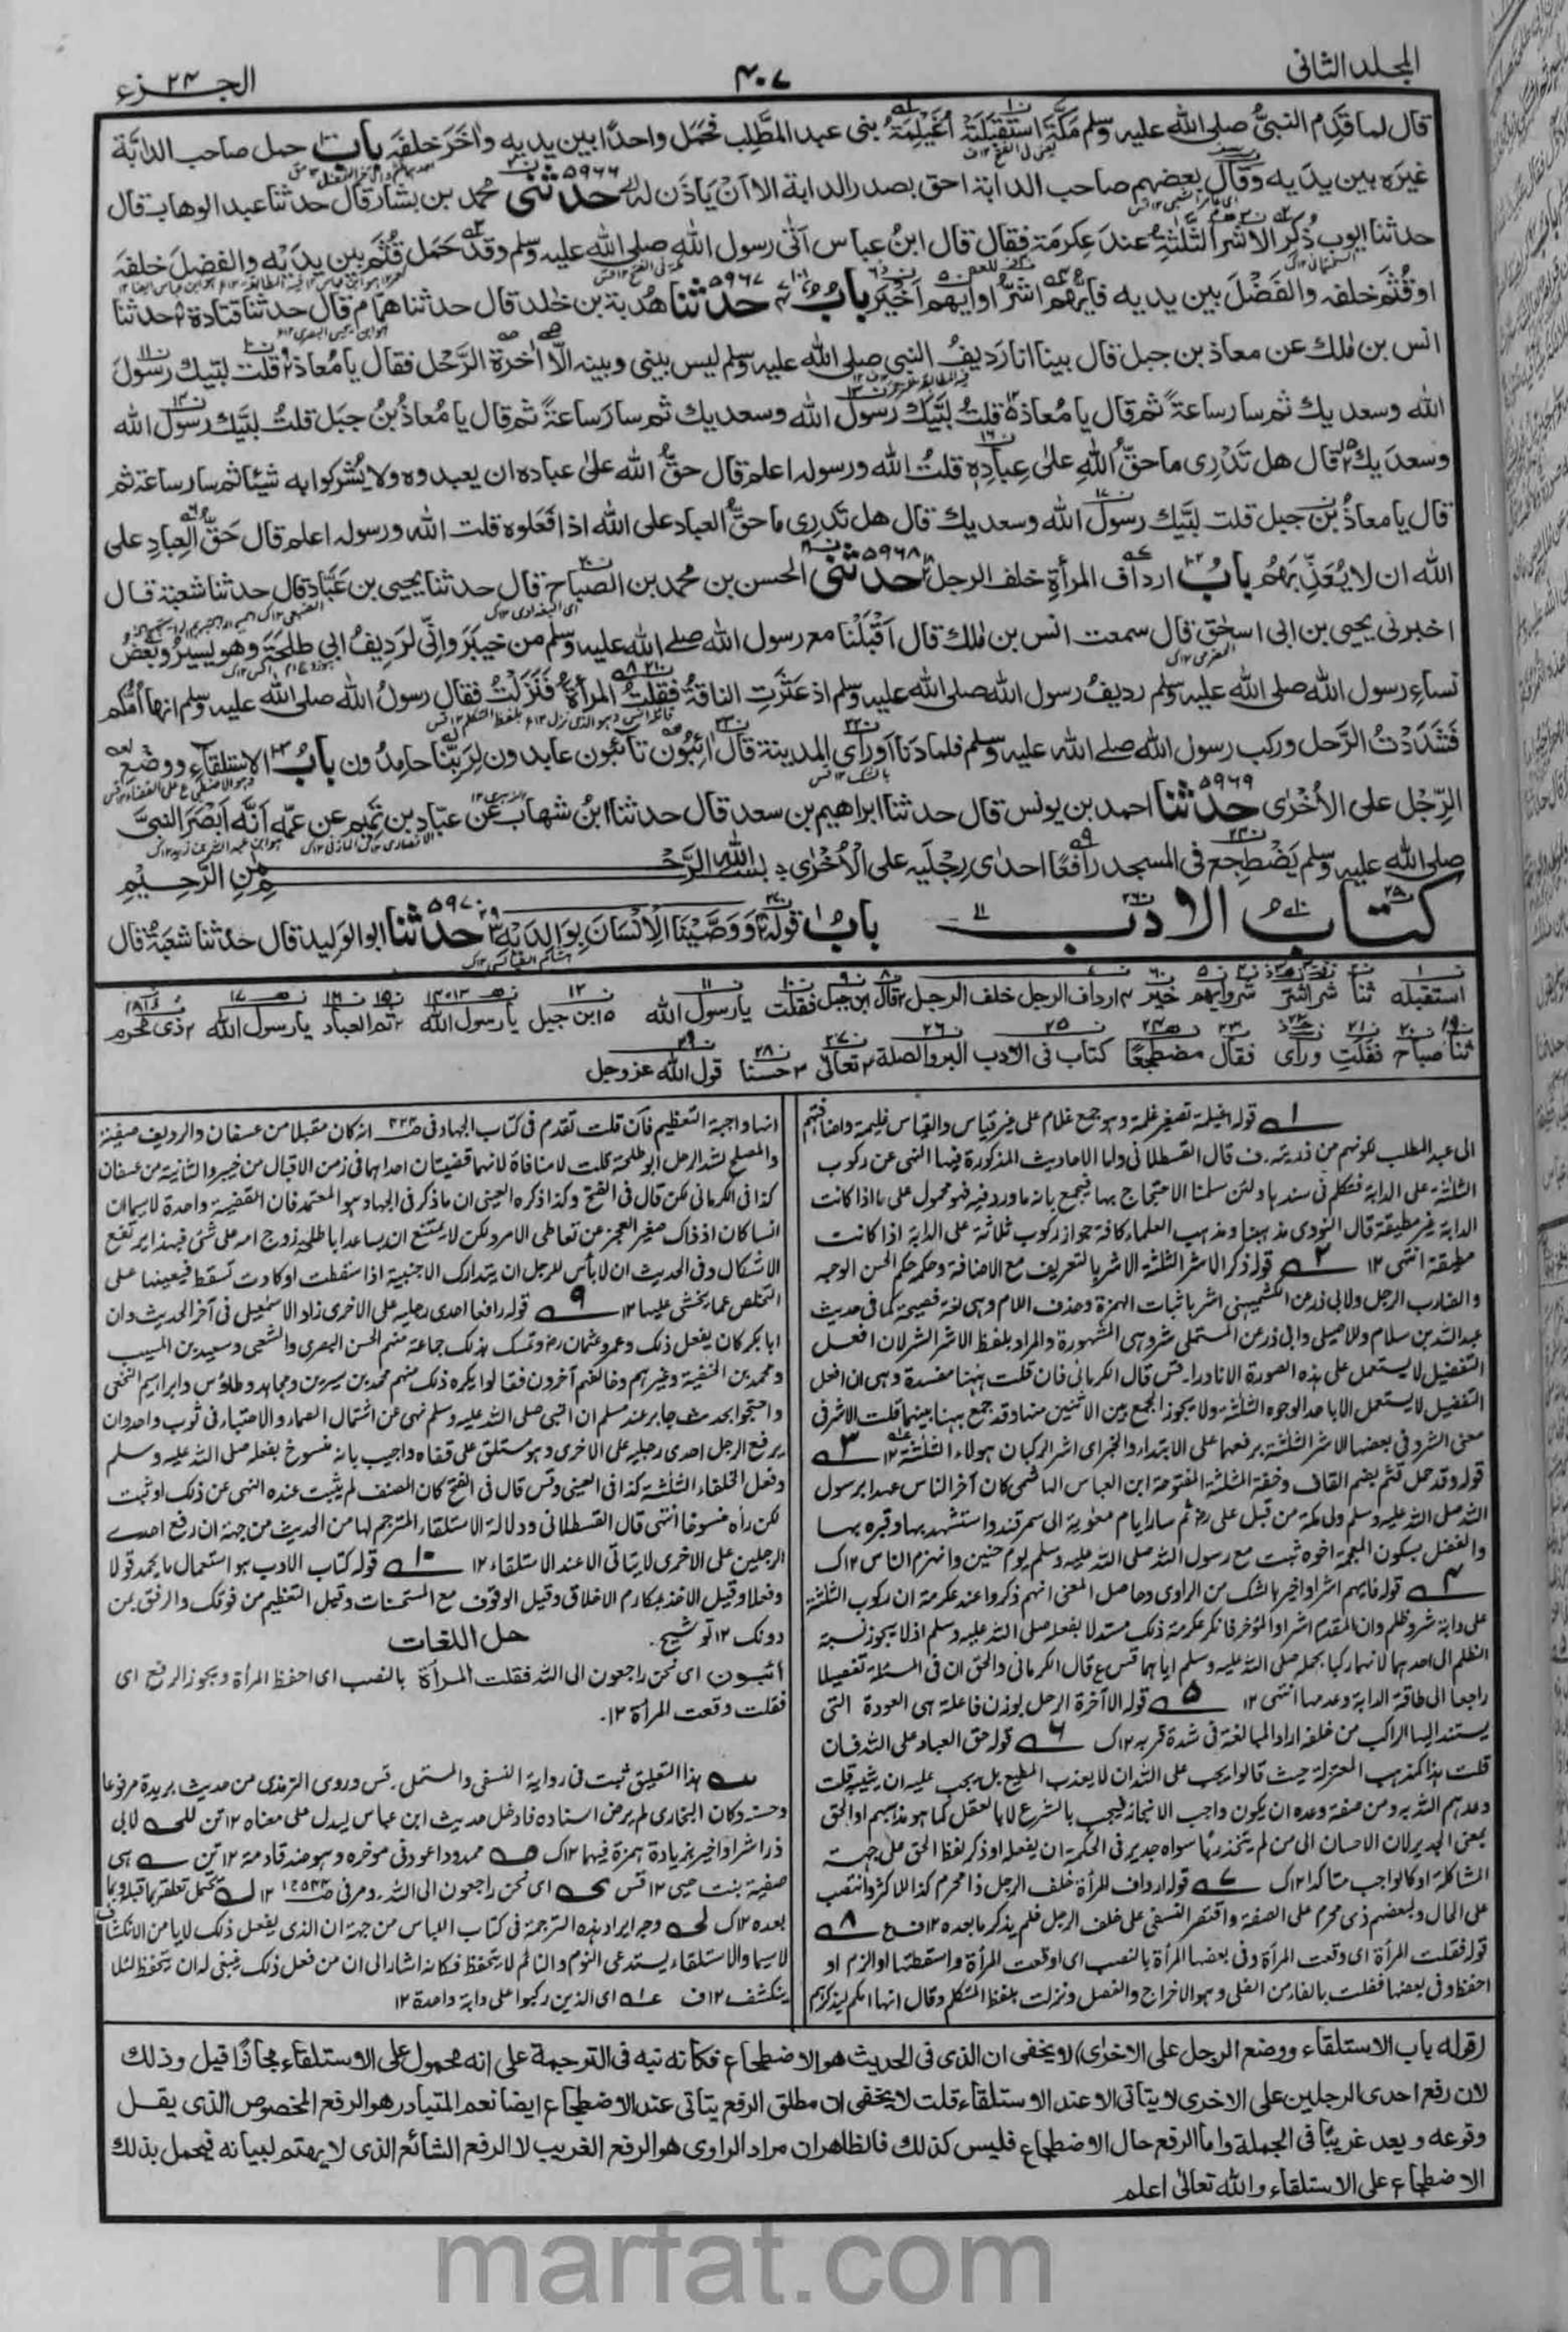 المجلد الثانى
٤٠٧
الجزء ٢٤
قال لما قدم النبىُّ صلى الله عليه وسلم مَكَّةَ اسْتَقْبَلَتْهُ أُغَيْلِمَةُ بنى عبد المطَّلِب فحَمَل واحدًا بين يديه واٰخَرَ خلفَه باب حمل صاحب الدابّة
غيرَه بين يديه وقال بعضهم صاحب الدابة احق بصدر الدابة الا ان يَاذَن له حدثنى محمد بن بشار قال حدثنا عبد الوهاب قال
حدثنا ايوب ذُكِرَ الاشرّ الثلٰثةِ عندَ عِكرمَة فقال قال ابنُ عباس اَتٰى رسول الله صلى الله عليه وسلم وقد حَمَل قُثَم بين يديْه والفضلَ خلفَه
او قُثَم خلفه والفَضْلَ بين يديه فايهم اشرّ او ايهم اَخْيَر باب حدثنا هُدبة بن خٰلد قال حدثنا همام قال حدثنا قتادة حدثنا
انس بن مٰلك عن معاذ بن جبل قال بينا انا رَديفُ النبى صلى الله عليه وسلم ليس بينى وبينه الَّا اٰخرة الرَّحْل فقال يا مُعاذ قلت لبّيك رسولَ
الله وسعديك ثم سار ساعةً ثم قال يا مُعاذ قلتُ لبَّيك رسولَ الله وسعديك ثم سار ساعةً ثم قال يا مُعاذُ بنُ جبَل قلتُ لبَّيك رسولَ الله
وسعدَيك قال هل تَدْرِى ما حقُّ اللهِ علىٰ عِبادِه قلتُ الله ورسوله اعلم قال حقُّ الله علىٰ عباده ان يعبدوه ولا يُشركوا به شيئا ثم سار ساعة ثم
قال يا معاذُ بنُ جبل قلت لبَّيك رسولَ الله وسعديك قال هل تَدرِى ما حقُّ العباد على الله اذا فَعَلوه قلت الله ورسوله اعلم قال حَقُّ العِبادِ على
الله ان لا يُعَذِّبَهُم بابُ ارداف المرأةِ خلف الرجل حدثنى الحسن بن محمد بن الصباح قال حدثنا يحيى بن عَبّاد قال حدثنا شعبة قال
اخبرنى يحيى بن ابى اسحٰق قال سمعت انس بن مٰلك قال اَقْبَلْنا مع رسول الله صلى الله عليه وسلم من خيبَرَ وانّى لرَدِيفُ ابى طلحَة وهو يسيرُ وبَعْضُ
نساءِ رسول الله صلى الله عليه وسلم رديفُ رسول الله صلى الله عليه وسلم اذ عَثَرَتِ الناقةُ فقلتُ المرأةَ فَنَزَلْتُ فقال رسولُ الله صلى الله عليه وسلم انها اُمُّكم
فشَدَدْتُ الرَّحل وركب رسول الله صلى الله عليه وسلم فلما دَنا اَو رأى المدينة قال اٰئِبُون تائبُون عابدون لِرَبِّنا حامِدُون بابُ الاستلقاءِ ووضعِ
الرِّجْل على الأُخْرٰى حدثنا احمد بن يونس قال حدثنا ابراهيم بن سعد قال حدثنا ابنُ شهاب عن عبّاد بن تَمِيم عن عمّه اَنَّه اَبْصَرَ النبىَّ
صلى الله عليه وسلم يَضْطجع فى المسجد رافعًا احدٰى رِجْلَيه على الْأُخْرٰى بسم الله الرَّحْمٰنِ الرَّحِيْمِ
كتاب الادب بابُ قولِه وَوَصَّيْنَا الْاِنْسَانَ بِوَالِدَيْهِ حدثنا ابو الوليد قال حدثنا شعبة قال
استقبله ثنا شر اشرّ شر وايهم خير ارداف الرجل خلف الرجل قال ابن جبل فقلت يا رسول الله ابن جبل يا رسول الله ثم العباد يا رسول الله ذى محرم
ثنا صباح فقلت ورأى فقال مضطجعًا كتاب فى الادب البر والصلة تعالى حسنا قول الله عز وجل
قوله اغيلمة تصغير غلمة وهو جمع غلام على غير قياس والقياس غليمة واضافتهم
الى عبد المطلب لكونهم من ذريته. ف قال القسطلانى واما الاحاديث المذكورة فيها النهى عن ركوب
الثلٰثة على الدابة فتكلم فى سندها ولئن سلمنا الاحتجاج بها فيجمع بانه ما ورد فيه فهو محمول على ما اذا كانت
الدابة غير مطيقة قال النووى مذهبنا ومذهب العلماء كافة جواز ركوب ثلاثة على الدابة اذا كانت
مطيقة انتهى ١٢ ٢ قوله ذكر الاشر الثلثة الاشر بالتعريف مع الاضافة وحكمه حكم الحسن الوجه
والضارب الرجل ولابى ذر عن الكشميهنى اشر باثبات الهمزة وحذف اللام وهى لغة فصيحة كما فى حديث
عبد الله بن سلام وللاصيلى وابى ذر عن المستملى شر وهى المشهورة والمراد بلفظ الاشر الشر لان افعل
التفضيل لا يستعمل على هذه الصورة الا نادرا. قس قال الكرمانى فان قلت ههنا مفسدة وهى ان افعل
التفضيل لا يستعمل الا باحد الوجوه الثلثة ولا يجوز الجمع بين الاثنين منها وقد جمع ههنا بينهما قلت الاشر فى
معنى الشر وفى بعضها الاشر الثلثة برفعهما على الابتداء والخبر اى اشر الركبان هولاء الثلثة ١٢ ٣
قوله وقد حمل قثم بضم القاف وخفة المثلثة المفتوحة ابن العباس الهاشمى كان آخر الناس عهدا برسول
الله صلى الله عليه وسلم ولى مكة من قبل على رض ثم سار ايام معوية الى سمرقند واستشهد بها وقبره بها
والفضل بسكون المعجمة اخوه ثبت مع رسول الله صلى الله عليه وسلم يوم حنين وانهزم الناس ١٢ ك
٤ قوله فايهم اشر او اخير بالشك من الراوى وحاصل المعنى انهم ذكروا عند عكرمة ان ركوب الثلٰثة
على دابة شر وظلم وان المقدم اشر او المؤخر فانكر عكرمة ذلك مستدلا بفعله صلى الله عليه وسلم اذ لا يجوز نسبة
الظلم الى احدهما لانهما ركبا بحمله صلى الله عليه وسلم اياهما قس ع قال الكرمانى والحق ان فى المسئلة تفصيلا
راجعا الى طاقة الدابة وعدمها انتهى ١٢ ٥ قوله الا آخرة الرحل بوزن فاعلة هى العودة التى
يستند اليها الراكب من خلفه اراد المبالغة فى شدة قربه ١٢ ك ٦ قوله حق العباد على الله فان
قلت هذا كمذهب المعتزلة حيث قالوا يجب على الله ان لا يعذب المطيع بل يجب عليه ان يثيبه قلت
وعدهم الله به ومن صفة وعده ان يكون واجب الانجاز فيجب بالشرع لا بالعقل كما هو مذهبهم او الحق
بمعنى الجدير لان الاحسان الى من لم يتخذ ربًا سواه جدير فى الحكمة ان يفعله او ذكر لفظ الحق على جهة
المشاكلة او كالواجب متاكدا ١٢ ك ٧ قوله ارداف المرأة خلف الرجل ذا محرم كذا للاكثر وانتصب
على الحال ولبعضهم ذى محرم على الصفة واقتصر النسفى على خلف الرجل فلم يذكر ما بعده ١٢ ف ع ٨
قوله فقلت المرأة اى وقعت المرأة وفى بعضها المرأة بالنصب اى اوقعت المرأة واسقطتها او الزم او
احفظ وفى بعضها ففلت بالفاء من الفلى وهو الاخراج والفصل ونزلت بلفظ المتكلم وقال انها امكم ليذكرهم
انها واجبة التعظيم فان قلت تقدم فى كتاب الجهاد فى انه كان مقبلا من عسفان والرديف صفية
والمصلح لشد الرحل ابو طلحة قلت لا منافاة لانهما قضيتان احداهما فى زمن الاقبال من خيبر والثانية من عسفان
كذا فى الكرمانى لكن قال فى الفتح وكذا ذكره العينى ان ما ذكر فى الجهاد هو المعتمد فان القضية واحدة لاسيما ان
انسا كان اذ ذاك صغير العجز عن تعاطى الامر ولكن لا يمتنع ان يساعد ابا طلحة زوج امه على شئ فبهذا يرتفع
الاشكال وفى الحديث ان لا بأس للرجل ان يتدارك الاجنبية اذا سقطت او كادت تسقط فيعينها على
التخلص مما يخشى عليها ١٢ ٩ قوله رافعا احدى رجليه على الاخرى زاد الاسمٰعيلى فى آخر الحديث وان
ابا بكر كان يفعل ذلك وعمر وعثمان رض وتمسك بذلك جماعة منهم الحسن البصرى والشعبى وسعيد بن المسيب
ومحمد بن الحنفية وغيرهم وخالفهم آخرون فقالوا يكره ذلك منهم محمد بن سيرين ومجاهد وطاؤس وابراهيم النخعى
واحتجوا بحديث جابر عند مسلم ان النبى صلى الله عليه وسلم نهى عن اشتمال الصماء والاحتباء فى ثوب واحد وان
يرفع الرجل احدى رجليه على الاخرى وهو مستلق على قفاه واجيب بانه منسوخ بفعله صلى الله عليه وسلم
وفعل الخلفاء الثلٰثة كذا فى العينى وقس قال فى الفتح كان المصنف لم يثبت عنده النهى عن ذلك او ثبت
لكن رأه منسوخا انتهى قال القسطلانى ودلالة الاستلقاء المترجم لها من الحديث من جهة ان رفع احدى
الرجلين على الاخرى لا يتاتى الا عند الاستلقاء ١٢ ١٠ قوله كتاب الادب هو استعمال ما يحمد قولا
وفعلا وقيل الاخذ بمكارم الاخلاق وقيل الوقوف مع المستحسنات وقيل التعظيم من فوقك والرفق بمن
دونك ١٢ توشيح. حل اللغات
اٰئبون اى نحن راجعون الى الله فقلت المرأة بالنصب اى احفظ المرأة ويجوز الرفع اى
فقلت وقعت المرأة ١٢.
هذا التعليق ثبت فى رواية النسفى والمستملى. قس وروى الترمذى من حديث بريدة مرفوعا
وحسنه وكان البخارى لم يرض اسناده فادخل حديث ابن عباس ليدل على معناه ١٢ تن لابى
ذر اشر او اخير بزيادة همزة فيهما ١٢ ك ممدودا عود فى موخره وهو ضد قادمة ١٢ تن هى
صفية بنت حيى ١٢ قس اى نحن راجعون الى الله. ومر فى ١٢ يحتمل تعلقه بما قبله وبما
بعده ١٢ ك وجه ايراد هذه الترجمة فى كتاب اللباس من جهة ان الذى يفعل ذلك لا يامن الانكشاف
لاسيما والاستلقاء يستدعى النوم والنائم لا يتحفظ فكانه اشار الى ان من فعل ذلك ينبغى له ان يتحفظ لئلا
ينكشف ١٢ ف اى الذين ركبوا على دابة واحدة ١٢
(قوله باب الاستلقاء ووضع الرجل على الاخرٰى) لا يخفى ان الذى فى الحديث هو الاضطجاع فكانه نبه فى الترجمة على انه محمول على الاستلقاء مجازًا قيل وذلك
لان رفع احدى الرجلين على الاخرى لا يتاتى الا عند الاستلقاء قلت لا يخفى ان مطلق الرفع يتاتى عند الاضطجاع ايضا نعم المتبادر هو الرفع المخصوص الذى يقل
وقوعه ويعد غريبًا فى الجملة واما الرفع حال الاضطجاع فليس كذلك فالظاهر ان مراد الراوى هو الرفع الغريب لا الرفع الشائع الذى لا يهتم لبيانه فيحمل بذلك
الاضطجاع على الاستلقاء والله تعالىٰ اعلم
marfat.com